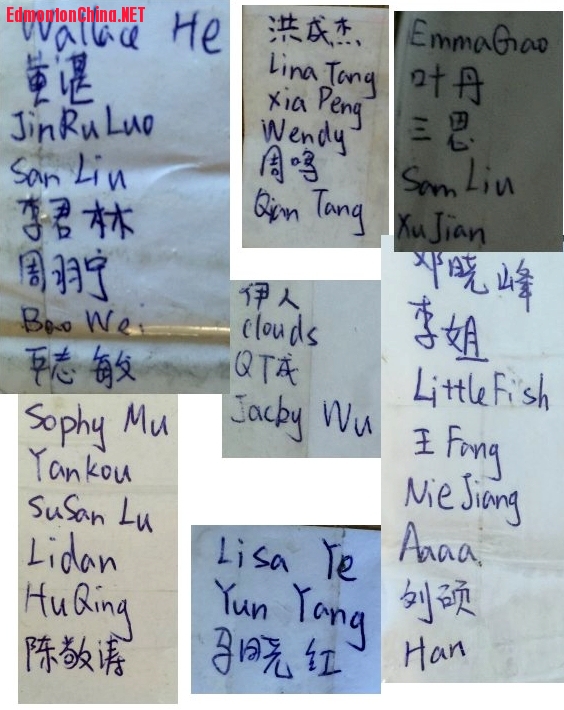 EdmontonChina.NET
Wallace He
黄湛
JinRu Luo
San Liu
李君林
周羽宁
Bao Wei
志敏
洪成杰
Lina Tang
Xia Peng
Wendy
周鸣
Qian Tang
Emma Gao
叶丹
三思
Sam Liu
Xu Jian
伊人
Clouds
QT成
Jacky Wu
邓晓峰
李姐
Little Fish
王 Fang
Nie Jiang
Aaaa
刘硕
Han
Sophy Mu
Yankou
SuSan Lu
Lidan
Hu Qing
陈敬涛
Lisa Ye
Yun Yang
马晓红